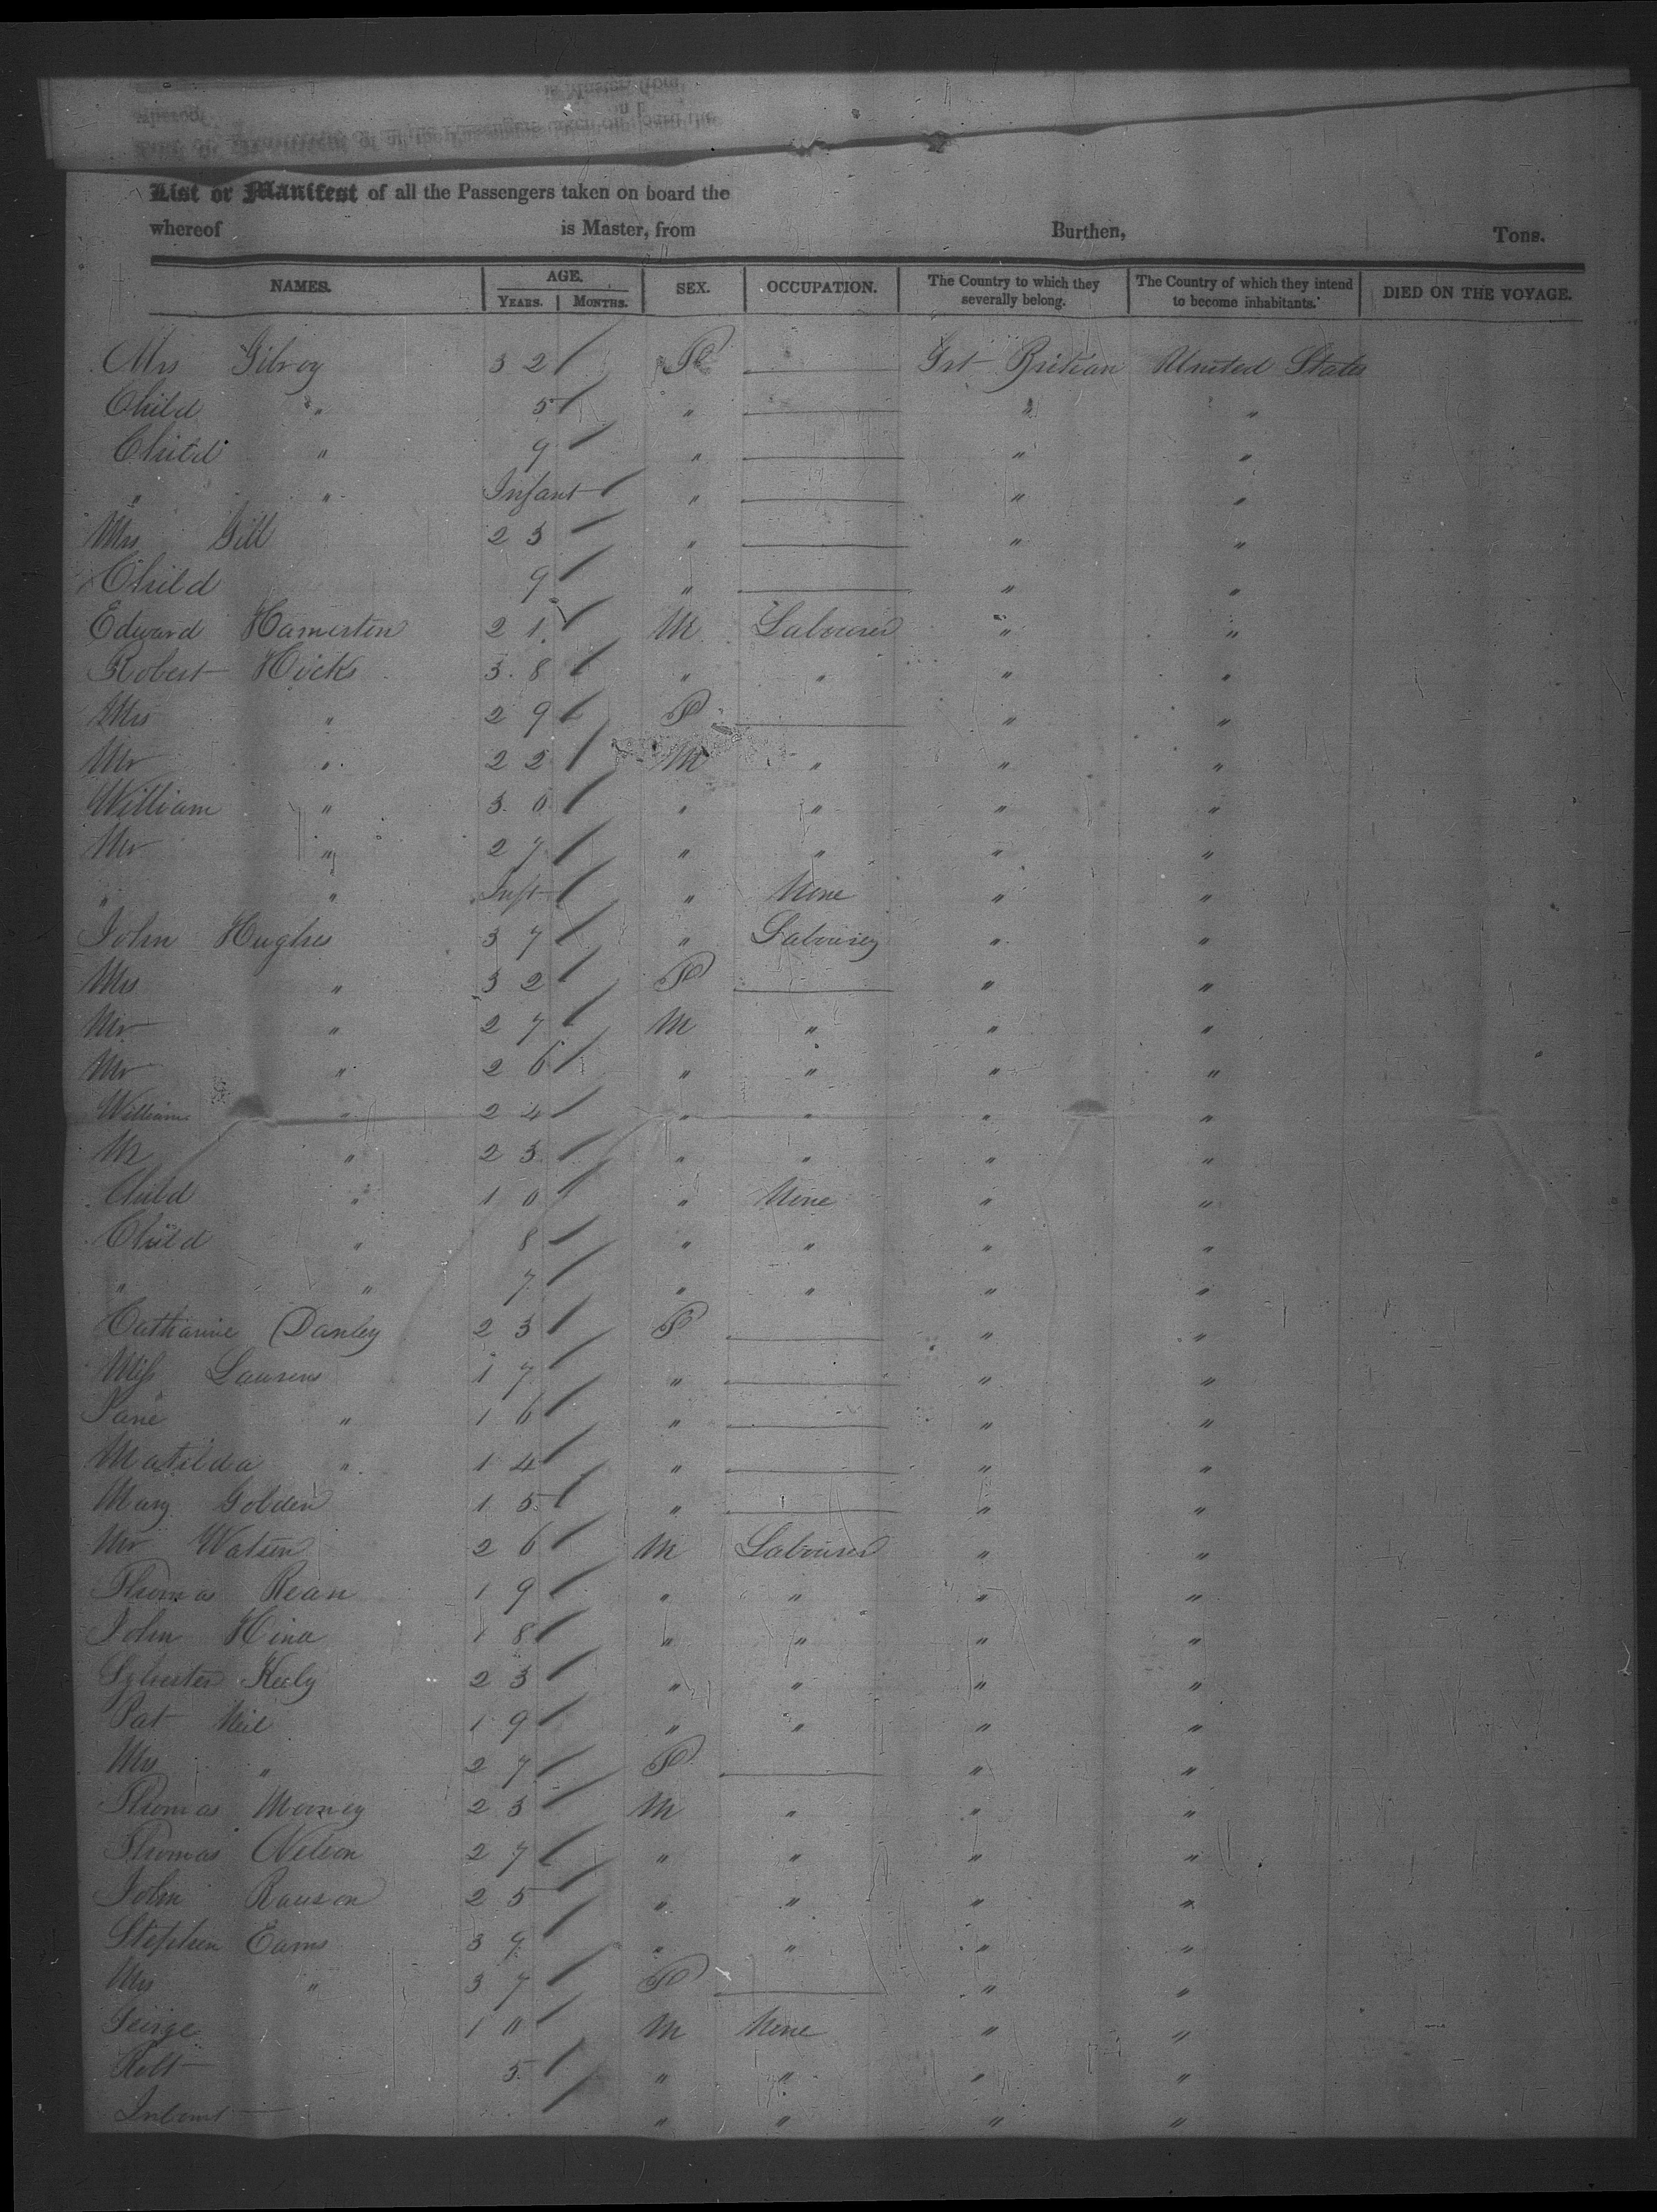 List or Manifest of all the Passengers taken on board the
whereof is Master, from Burthen, Tons.
NAMES. AGE. SEX. OCCUPATION. The Country to which they severally belong. The Country of which they intend to become inhabitants. DIED ON THE VOYAGE.
YEARS. MONTHS.
Mrs Gilroy 32 F Grt Britian United States
Child " 5 " " "
Child " 9 " " "
" " Infant " " "
Mrs Gill 23 " " "
Child 9 " " "
Edward Hamerston 21 M Labourer " "
Robert Hicks 38 " " " "
Mrs " 29 F " "
Mr " 22 M " " "
William " 30 " " " "
Mr " 27 " " " "
" " Inft " None " "
John Hughes 37 " Labourer " "
Mrs " 32 F " "
Mr " 27 M " " "
Mr " 26 " " " "
William " 24 " " " "
Mr " 23 " " " "
Child " 10 " None " "
Child " 8 " " " "
" " 7 " " " "
Catharine Danley 23 F " "
Miss Laurens 17 " " "
Jane " 16 " " "
Matilda " 14 " " "
Mary Golden 15 " " "
Mr Watson 26 M Labourer " "
Thomas Rean 19 " " " "
John Hina 18 " " " "
Sylvester Keely 23 " " " "
Pat Neil 19 " " " "
Mrs " 27 F " "
Thomas Mooney 23 M " " "
Thomas Nelson 27 " " " "
John Rauson 25 " " " "
Stephen Eams 39 " " " "
Mrs " 37 F " "
George 10 M None " "
Robt 5 " " " "
Infant " " " "